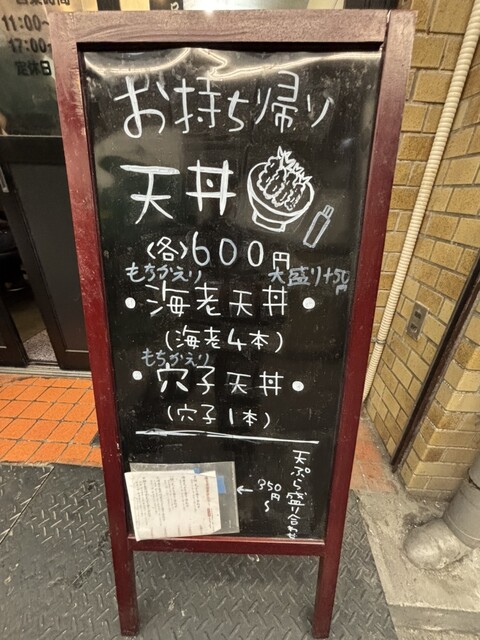 営業時間
11:00~
17:00~
定休日
お持ち帰り
天丼
(各)600円
もちかえり
大盛り+50円
・海老天丼・
(海老4本)
もちかえり
・穴子天丼・
(穴子1本)
天ぷら盛り合わせ
←350円~